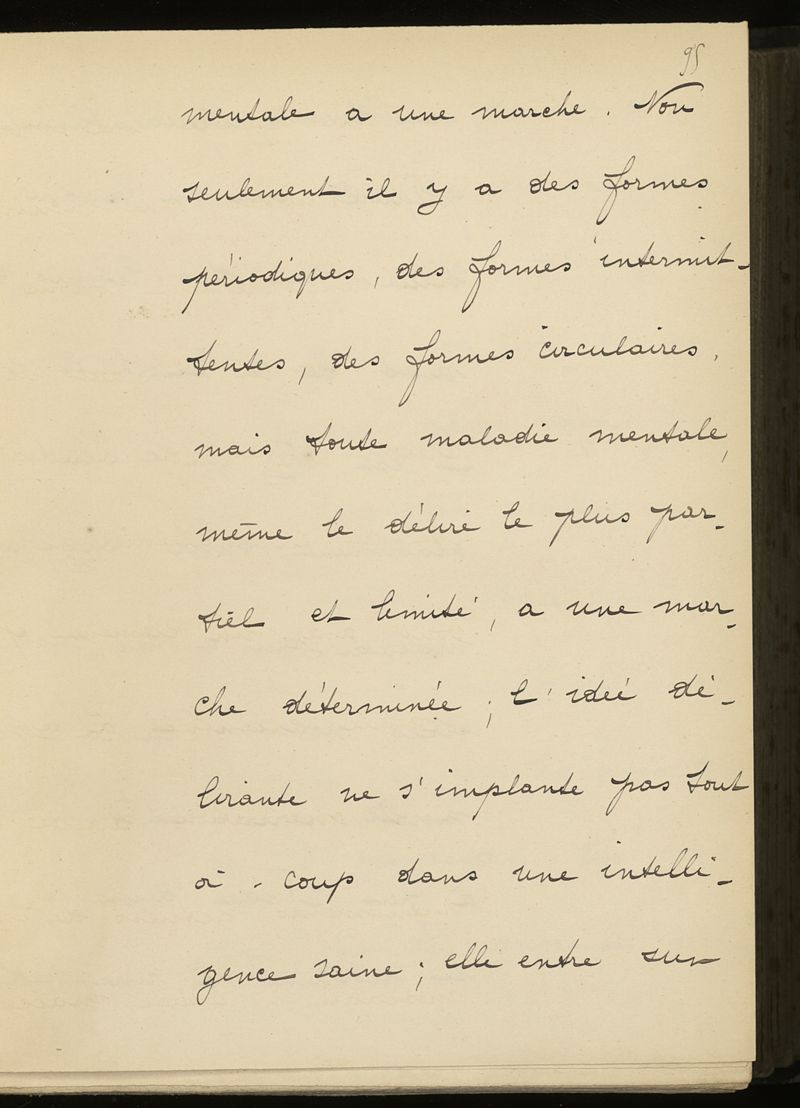 95
mentale a une marche. Non
seulement il y a des formes
périodiques, des formes intermit-
tentes, des formes circulaires,
mais toute maladie mentale,
même le délire le plus par-
tiel et limité, a une mar-
che déterminée; l'idée dé-
lirante ne s'implante pas tout
à-coup dans une intelli-
gence saine; elle entre sur